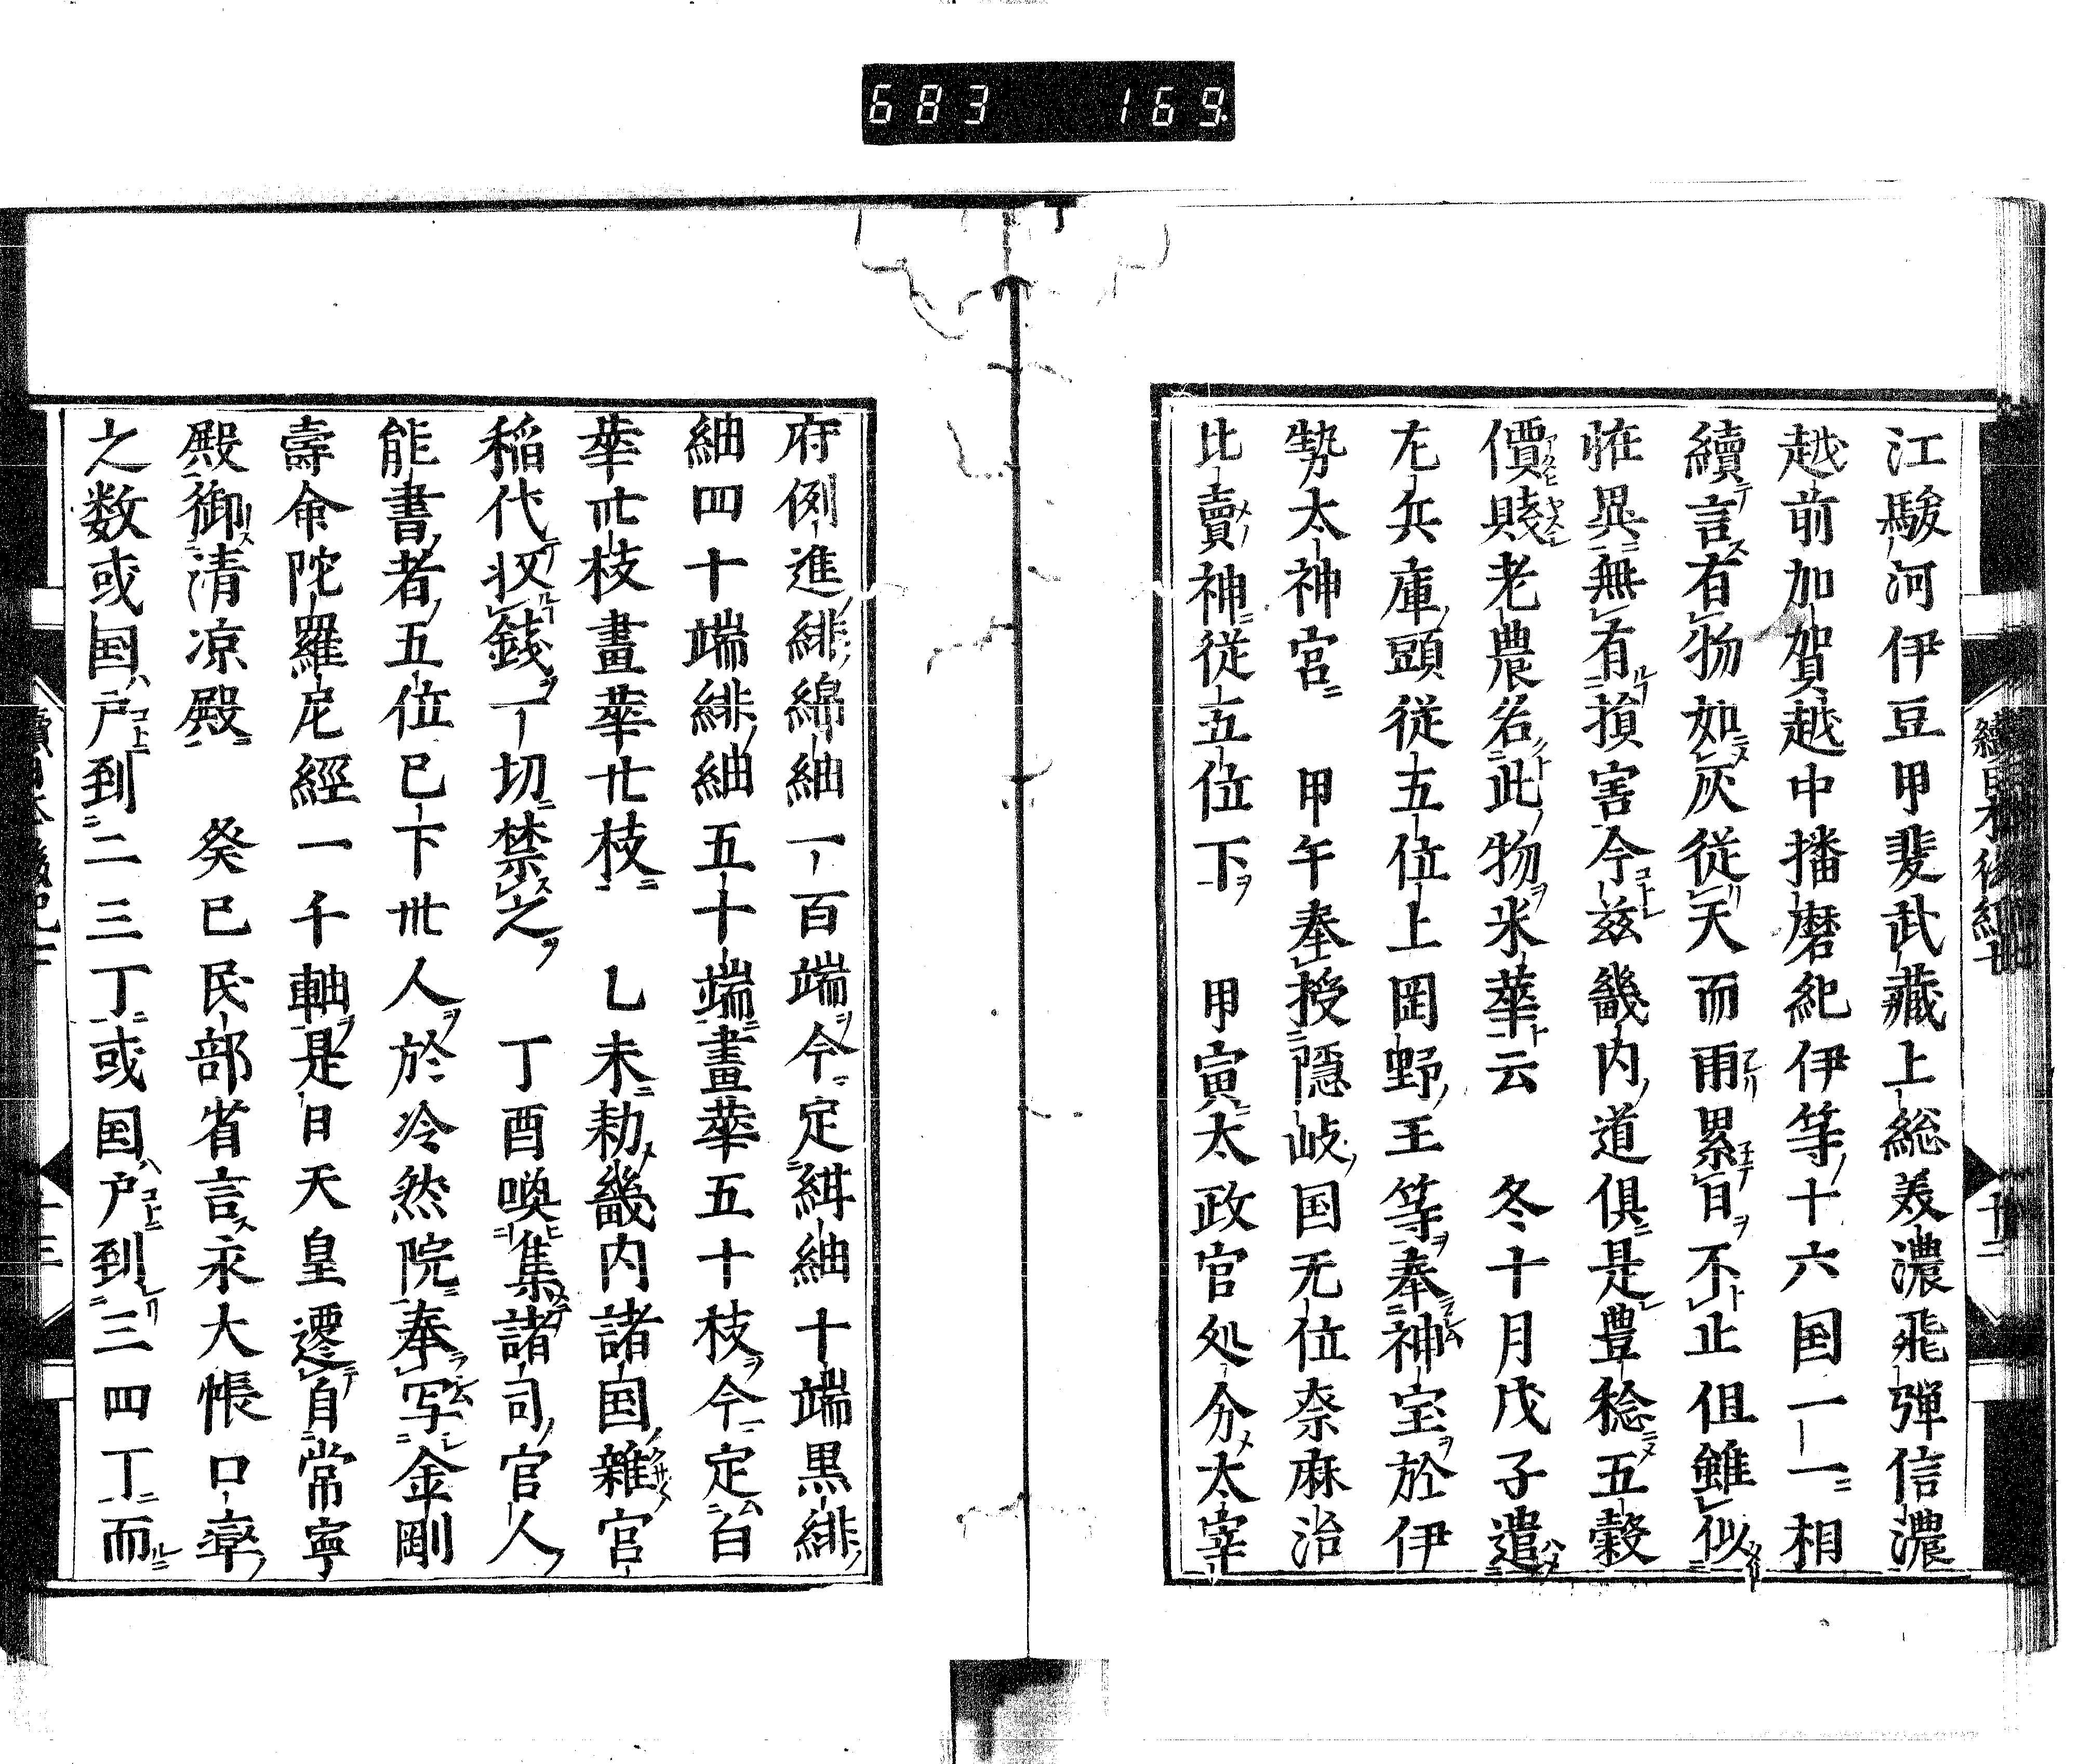 683 169
江駿河伊豆甲斐武藏上総美濃飛彈信濃
越前加賀越中播磨紀伊等十六国一一相
續言有物如灰従天而雨累日不止但雖似
恠異無有損害今茲畿内道俱是豊稔五穀
價賤老農名此物米華云　冬十月戊子遣
左兵庫頭従五位上岡野王等奉神宝於伊
勢太神宮　甲午奉授隠岐国无位奈麻治
比賣神従五位下　甲寅太政官処分太宰
府例進緋綿紬一百端今定緋紬十端黒緋
紬四十端緋紬五十端畫華五十枝今定白
華卅枝畫華廿枝　乙未勅畿内諸国雜官
稲代収錢一切禁之　丁酉喚集諸司官人
能書者五位已下卅人於冷然院奉写金剛
壽命陀羅尼經一千軸是日天皇遷自常寧
殿御清凉殿　癸巳民部省言承大帳口率
之数或国戸到二三丁或国戸到三四丁而